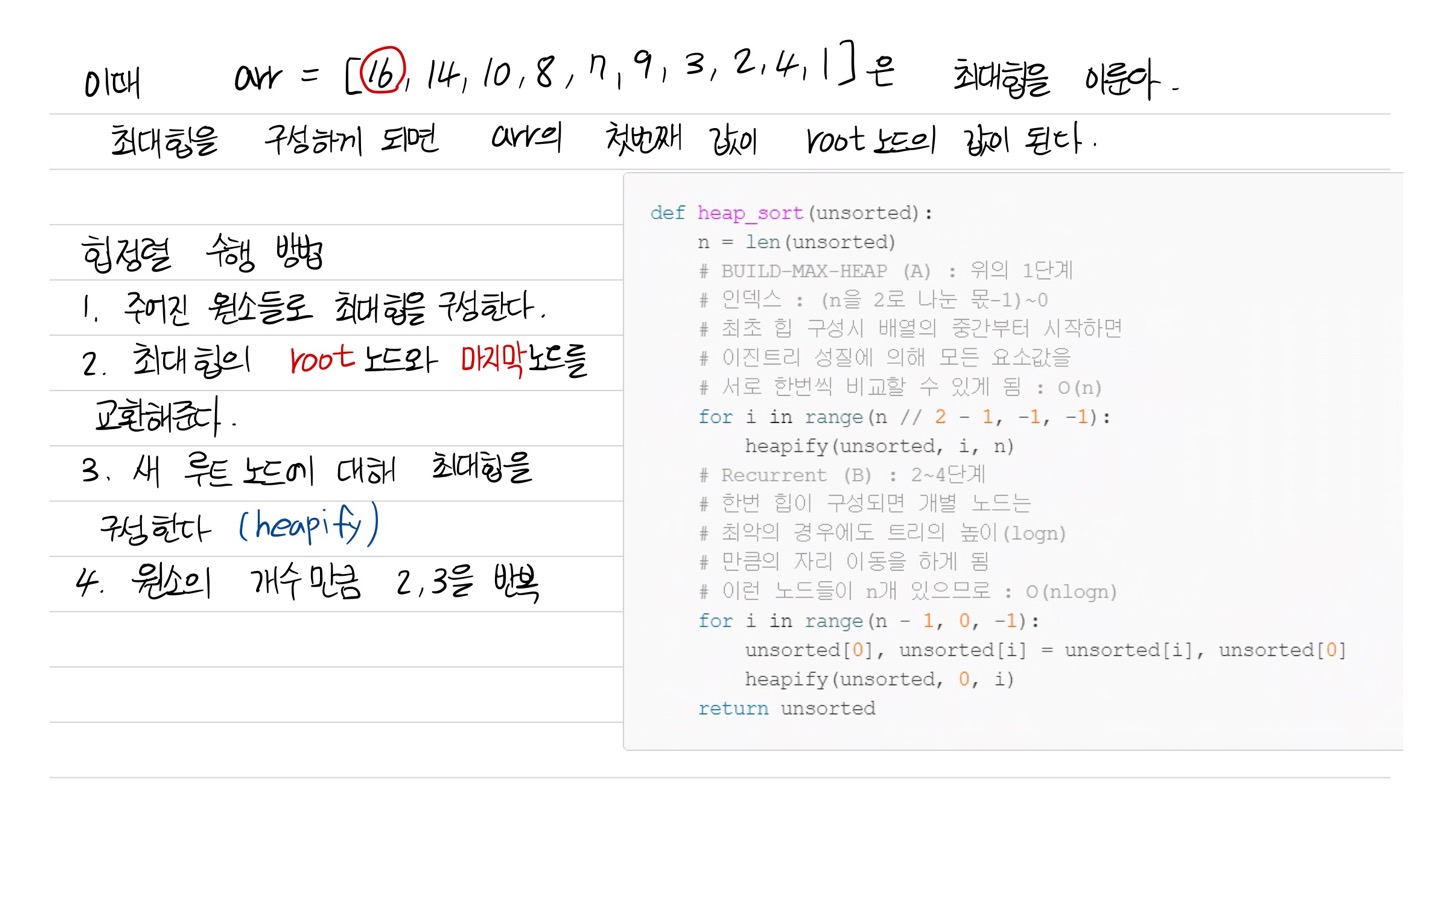 이때 arr = [16, 14, 10, 8, 7, 9, 3, 2, 4, 1]은 최대힙을 이룬다.
최대힙을 구성하게 되면 arr의 첫번째 값이 root 노드의 값이 된다.
힙정렬 수행 방법
1. 주어진 원소들로 최대힙을 구성한다.
2. 최대힙의 root 노드와 마지막노드를
교환해준다.
3. 새 루트 노드에 대해 최대힙을
구성한다 (heapify)
4. 원소의 개수만큼 2,3을 반복
def heap_sort(unsorted):
    n = len(unsorted)
    # BUILD-MAX-HEAP (A) : 위의 1단계
    # 인덱스 : (n을 2로 나눈 몫-1)~0
    # 최초 힙 구성시 배열의 중간부터 시작하면
    # 이진트리 성질에 의해 모든 요소값을
    # 서로 한번씩 비교할 수 있게 됨 : O(n)
    for i in range(n // 2 - 1, -1, -1):
        heapify(unsorted, i, n)
    # Recurrent (B) : 2~4단계
    # 한번 힙이 구성되면 개별 노드는
    # 최악의 경우에도 트리의 높이(logn)
    # 만큼의 자리 이동을 하게 됨
    # 이런 노드들이 n개 있으므로 : O(nlogn)
    for i in range(n - 1, 0, -1):
        unsorted[0], unsorted[i] = unsorted[i], unsorted[0]
        heapify(unsorted, 0, i)
    return unsorted